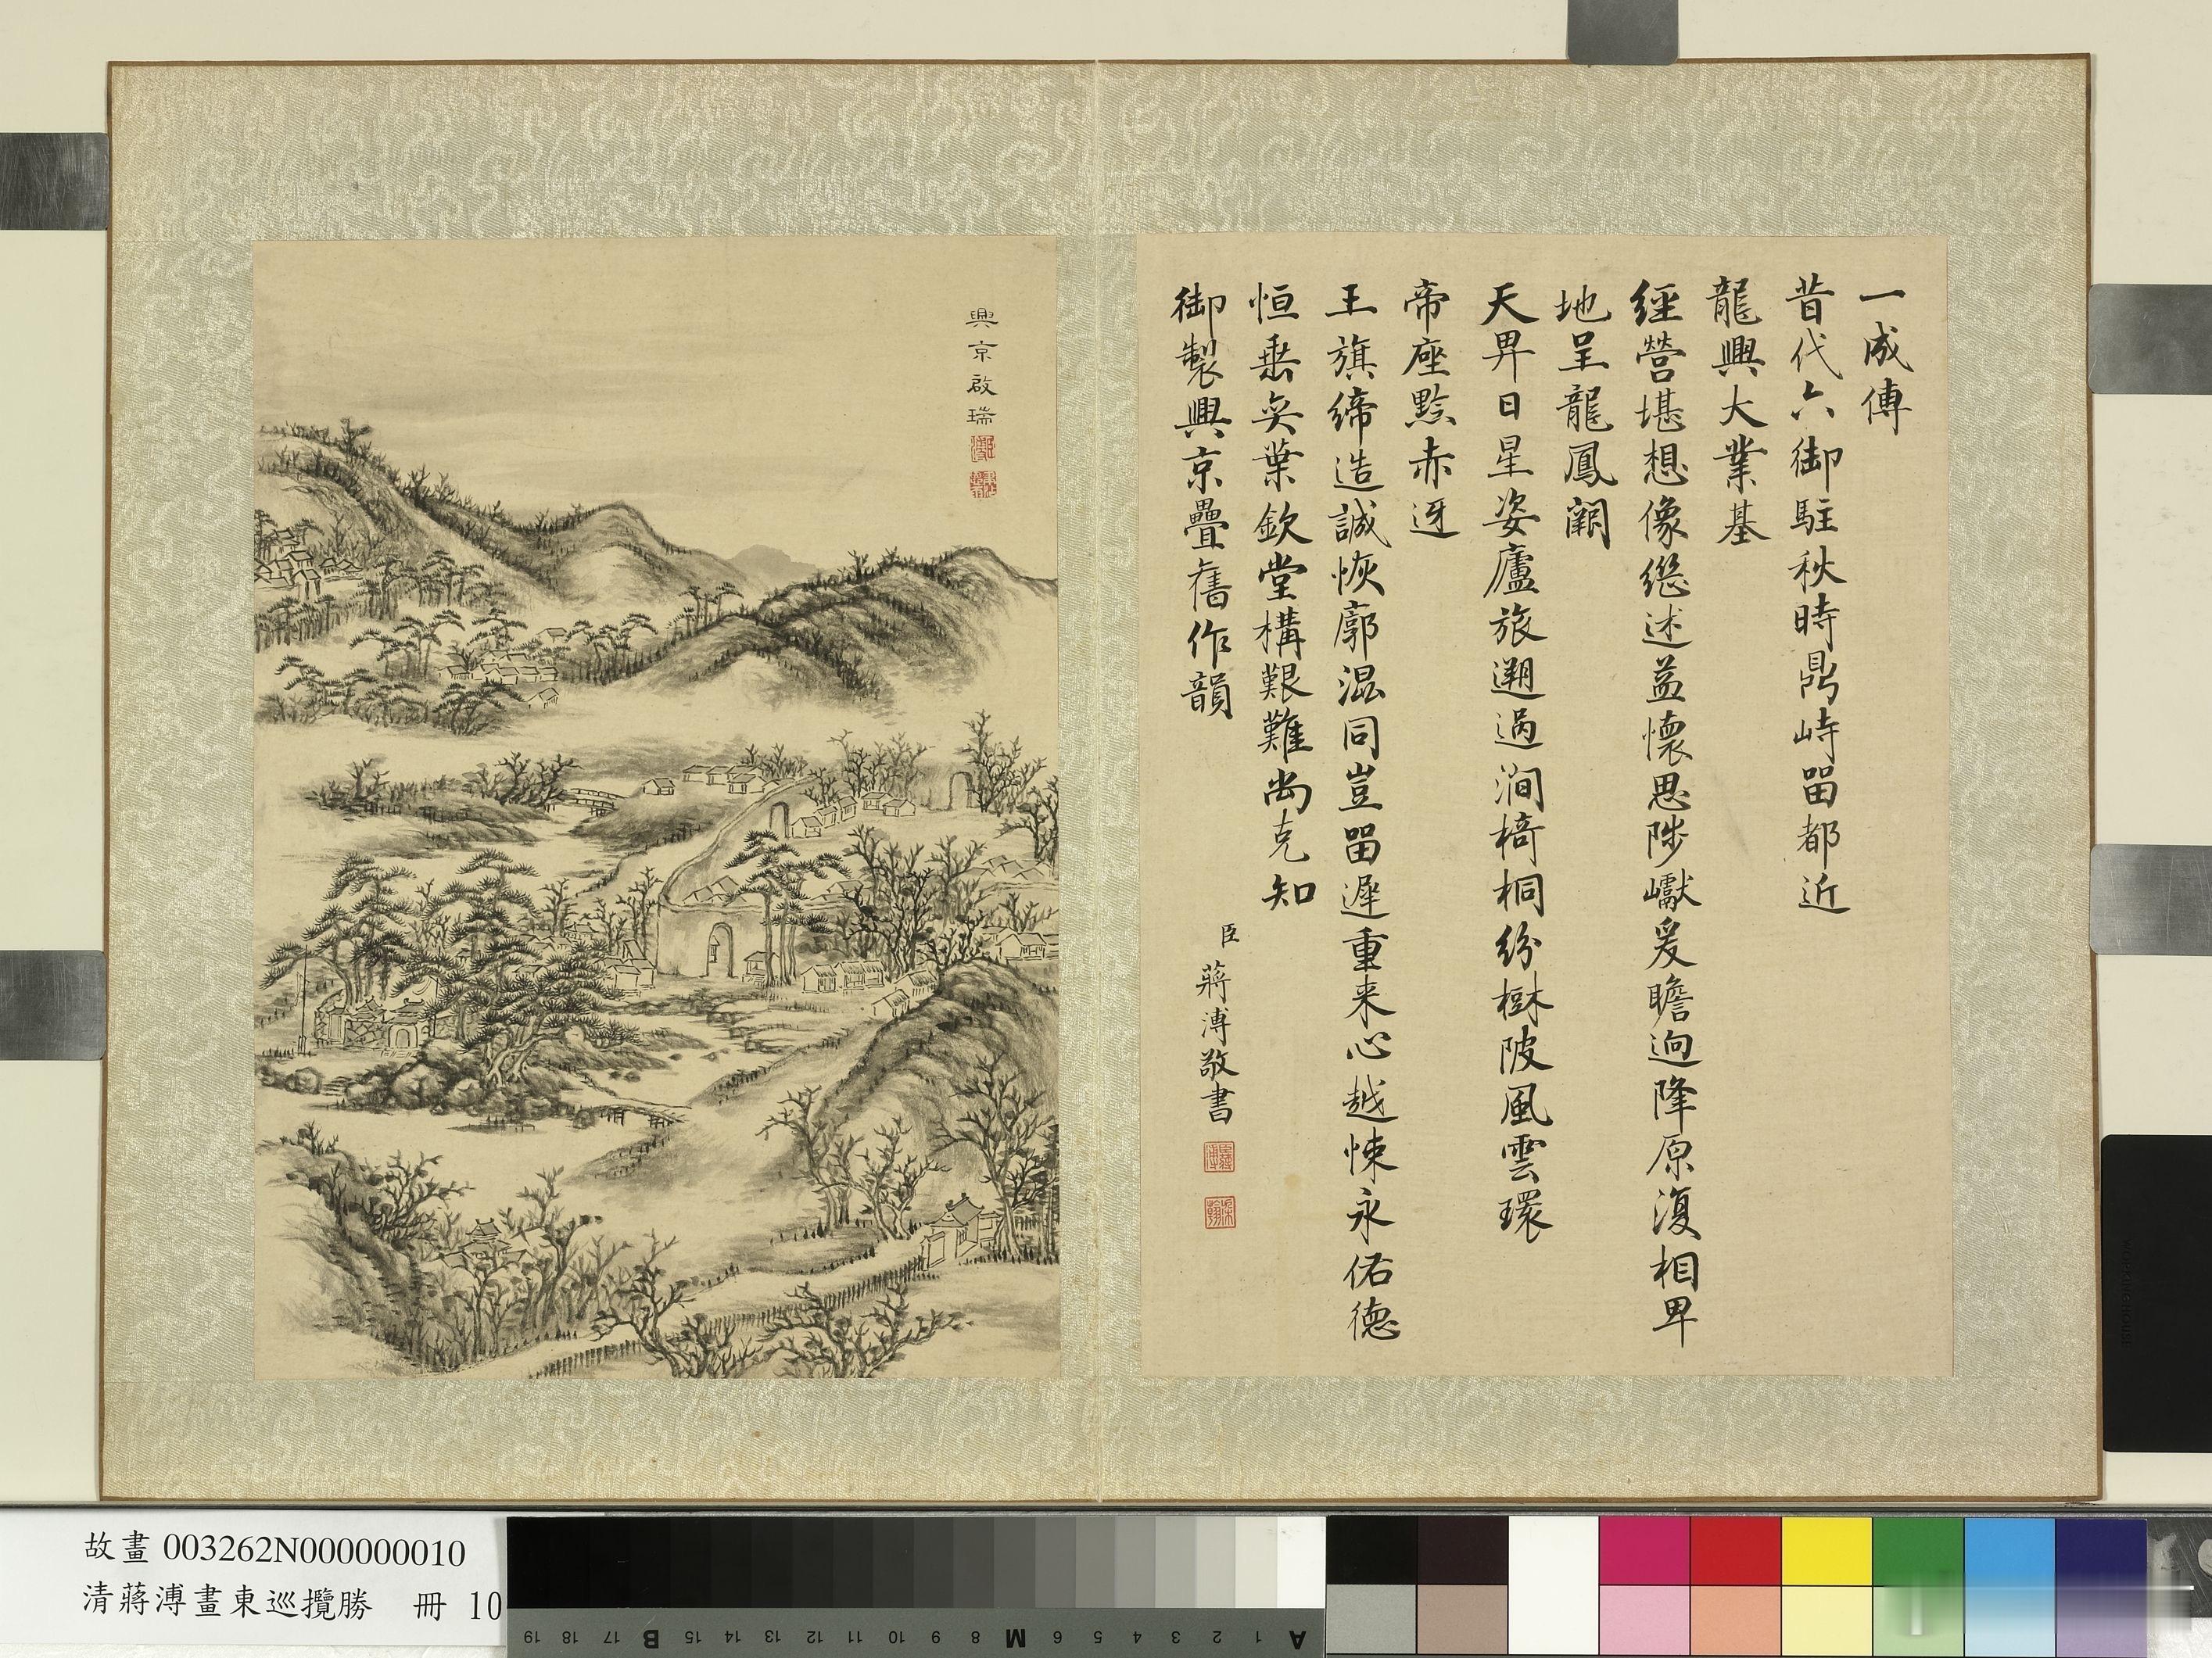 一成傳
昔代六御駐秋時鼎峙留都近
龍興大業基
經營堪想像繼述益懷思陟巘爰瞻迥降原復相卑
地呈龍鳳闕
天畀日星姿廬旅遡過澗椅桐紛樹陂風雲環
帝座黔赤迓
王旗締造誠恢廓混同豈留遲重来心越悚永佑德
恒垂奕葉欽堂構艱難尚克知
御製興京疊舊作韻
臣蔣溥敬書
興京啟瑞
故畫003262N000000010
清蔣溥畫東巡攬勝 冊 10
19 18 17 B 15 14 13 12 11 10 9 8 M 6 5 4 3 2 1 A